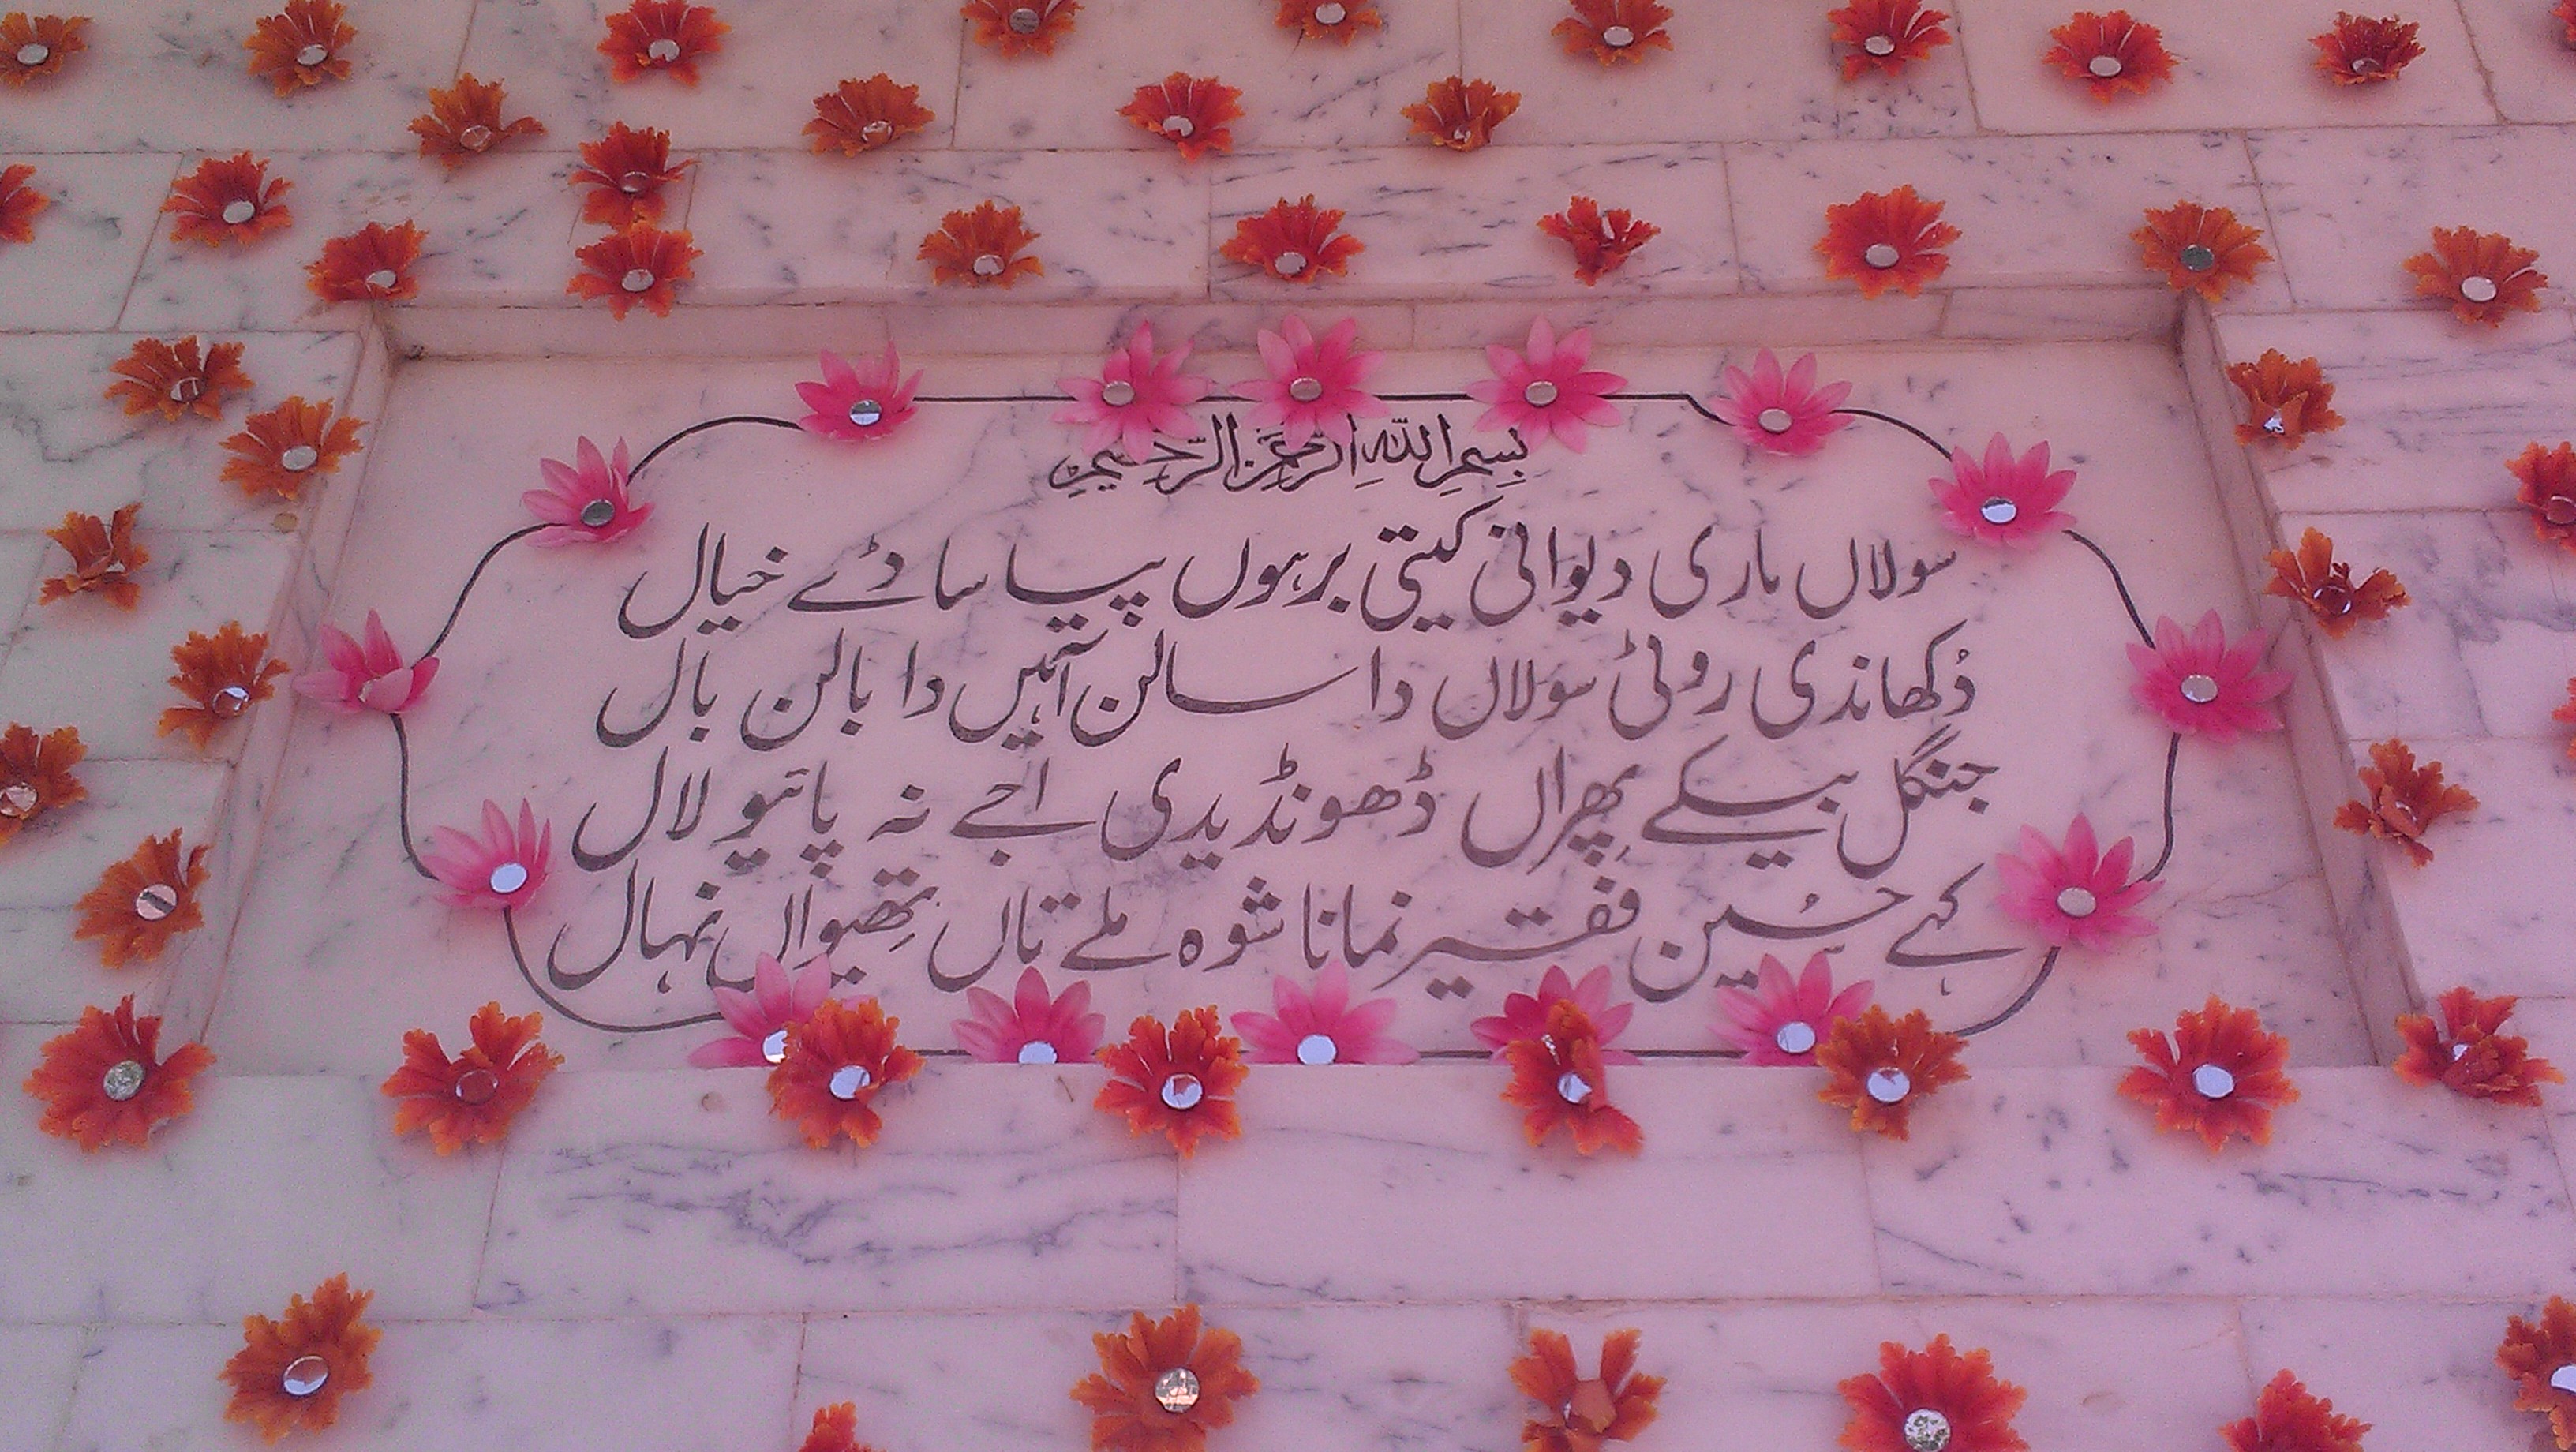 بِسمِ اللّٰهِ الرّحمٰنِ الرّحیمِ
سولاں ماری دیوانی کیتی برہوں پیا ساڈے خیال
دُکھاندی روٹی سولاں دا سالن آہیں دا بالن بال
جنگل بیلے پھِراں ڈھونڈیدی اجے نہ پائیو لال
کہے حُسین فقیر نمانا شوہ ملے تاں تھِیواں نہال